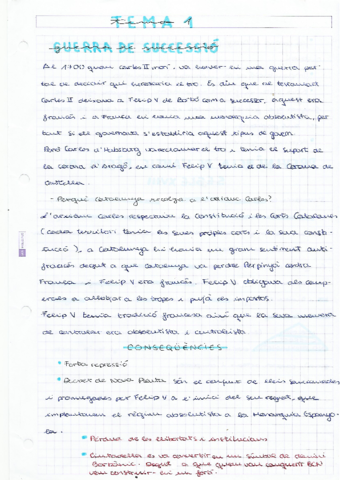 TEMA 1
GUERRA DE SUCCESSIÓ
Al 1700 quan Carles II morí, va haver-hi una guerra per
tal de decidir qui succeiria el tro. Es diu que el testament
Carles II deixava a Felip V de Borbó com a successor, aquest era
francès i a França hi havia una monarquia absolutista, per
tant si ell governava s'establiria aquest tipus de govern.
Però Carles d'Habsburg va reclamar el tro i tenia el suport de
la corona d'Aragó, en canvi Felip V tenia el de la Corona de
Castella.
- Perquè Catalunya recolza a l'arxiduc Carles?
L'arxiduc Carles respectava la Constitució i les Corts Catalanes
(cada territori tenia les seves pròpies corts i la seva consti-
tució), a Catalunya hi havia un gran sentiment anti-
francès degut a que Catalunya va perdre Perpinyà contra
França i Felip V era francès. Felip V obligava als
a allotjar a les tropes i pujà els impostos.
Felip V tenia tradició francesa així que la seva manera
de governar era absolutista i centralista
CONSEQÜÈNCIES
• Forta repressió
• Decret de Nova Planta són el conjunt de lleis
i promulgades per Felip V a l'inici del seu regnat, que
implantaven el règim absolutista a la Monarquia Espanyo-
la.
• Pèrdua de les llibertats i institucions
• Ciutadella es va convertir en un símbol de domini
Borbònic. Degut a que quan van conquerir BCN
van construir-hi un fort.